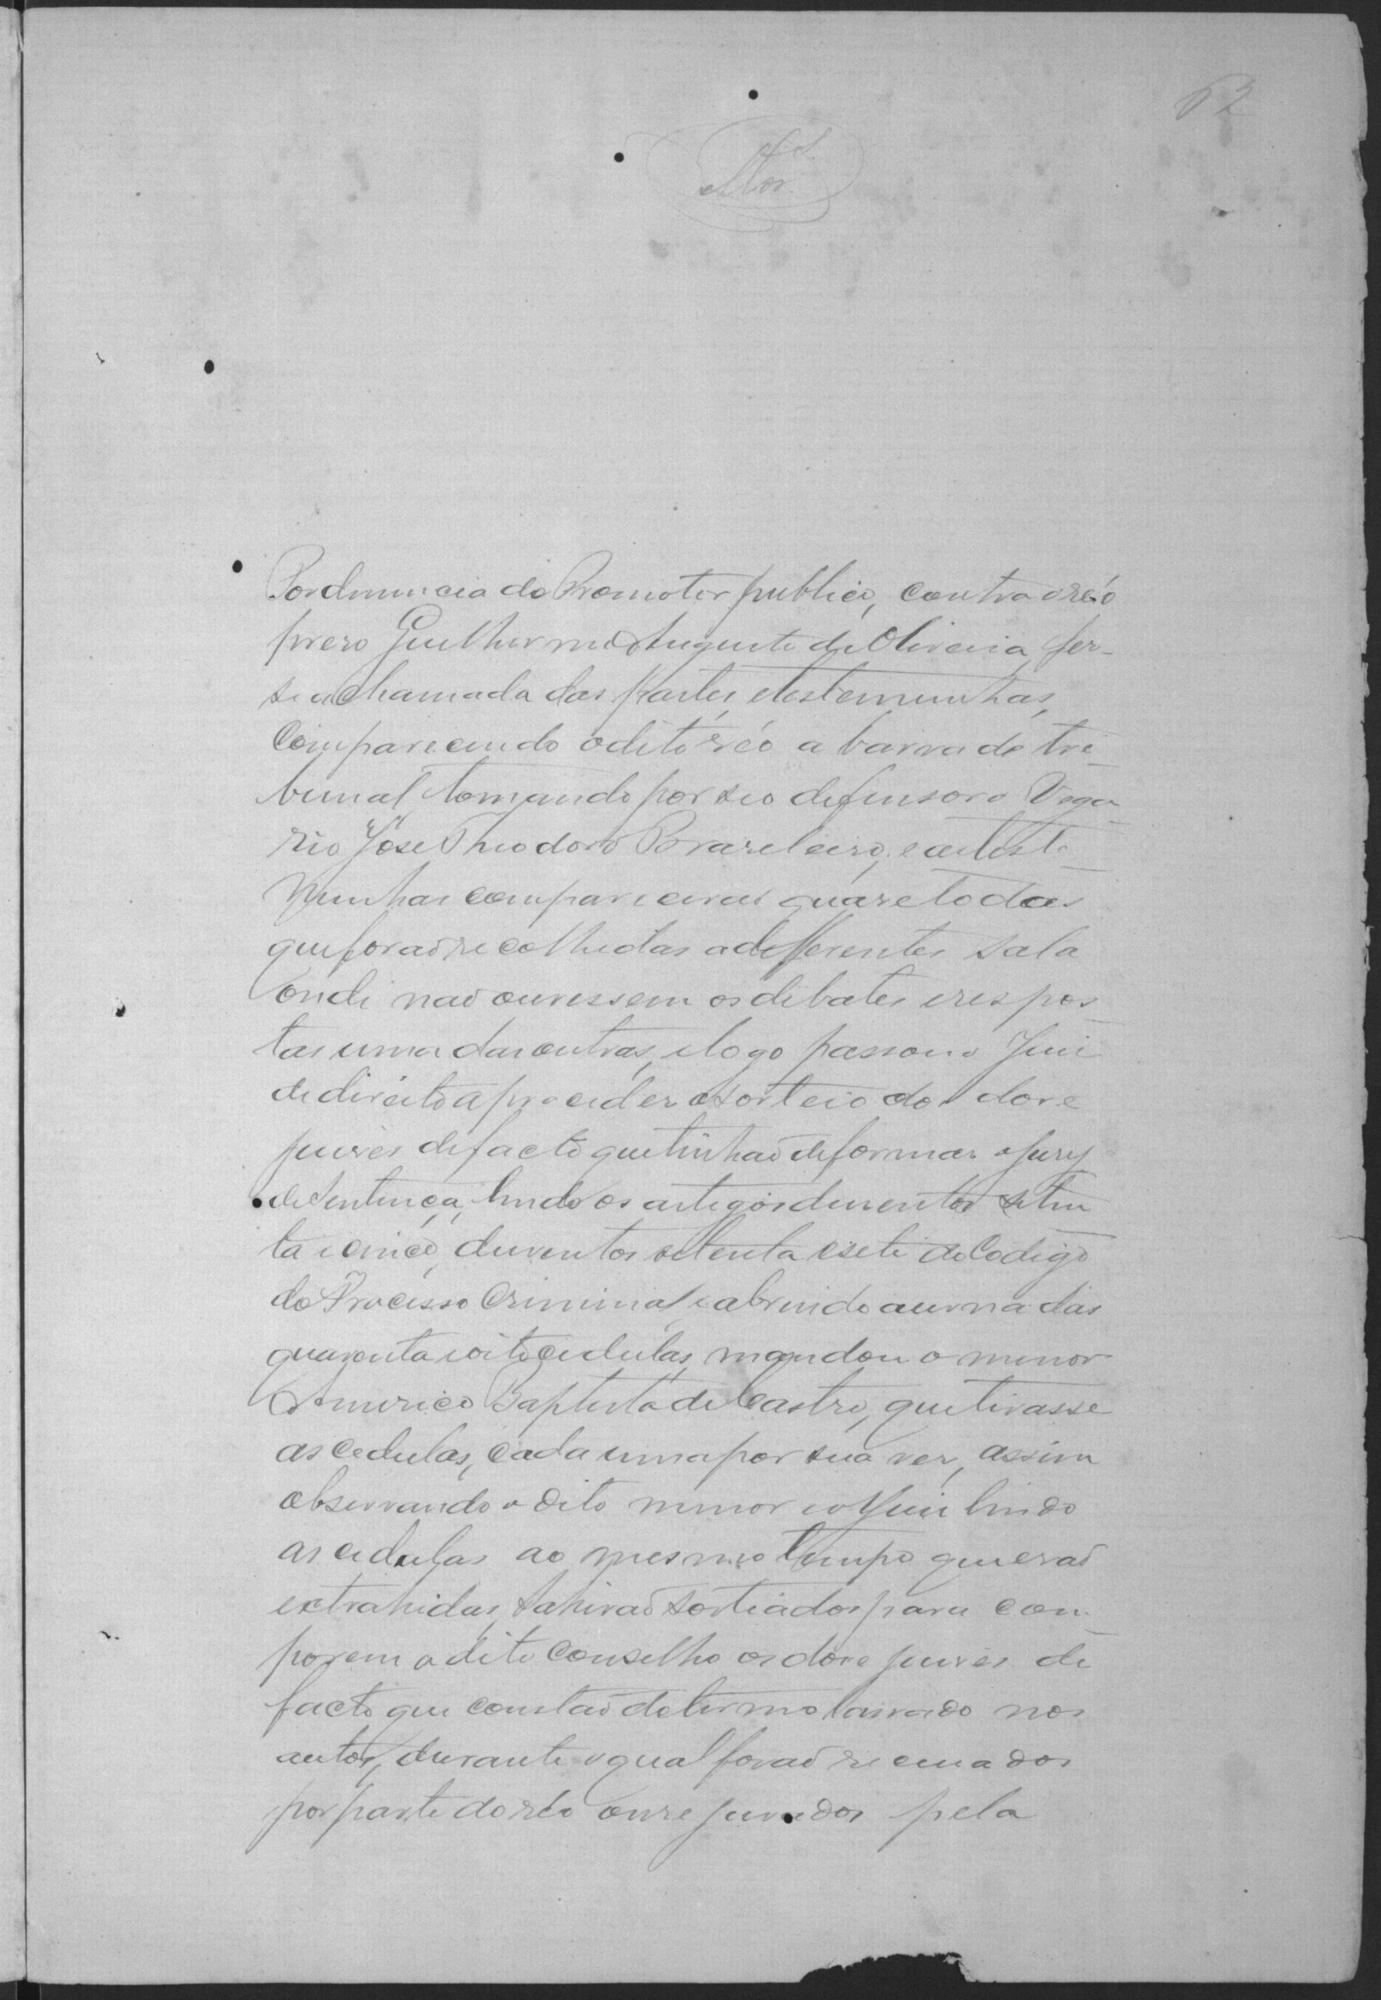 62
Por denuncia do Promotor publico, contra o réo
prezo Guilherme Augusto de Oliveira, fez-
se a chamada das partes, e testemunhas,
Comparecendo o dito réo a barra do tri-
bunal tomando por seo defensor o Viga-
rio José Theodoro Brazileiro, e as teste-
munhas comparecerão quaze todas
que forão recolhidas a defferentes sala
onde não ouvissem os debates e respos-
tas uma das outras, e logo passou o Juiz
de direito a proceder o sorteio dos doze
juizes de facto que tinhão de formar o Jury
de Sentença, lendo os artigos duzentos seten-
ta e cinco, duzentos setenta e sete do Codigo
do Processo Criminal, e abrindo a urna das
quarenta e oito cedulas, mandou o menor
Americo Baptista de Castro, que tirasse
as cedulas, cada uma por sua vez, assim
observando o dito menor e o Juiz lendo
as cedulas ao mesmo tempo que erão
extrahidas, sahirão sorteados para com-
porem o dito Conselho os doze juizes de
facto que constão do termo lavrado nos
autos, durante o qual forão recuzados
por parte do réo onze jurados pela